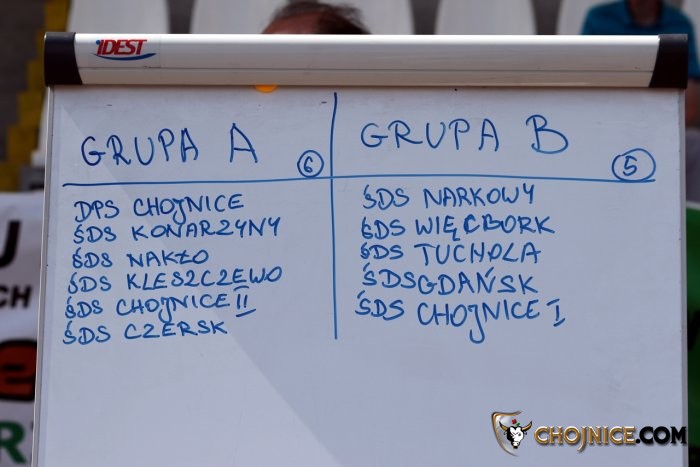 IDEST
GRUPA A 6
DPS CHOJNICE
ŚDS KONARZYNY
ŚDS NAKŁO
ŚDS KLESZCZEWO
ŚDS CHOJNICE II
ŚDS CZERSK
GRUPA B 5
ŚDS NARKOWY
ŚDS WIĘCBORK
ŚDS TUCHOLA
ŚDS GDAŃSK
ŚDS CHOJNICE I
CHOJNICE.COM